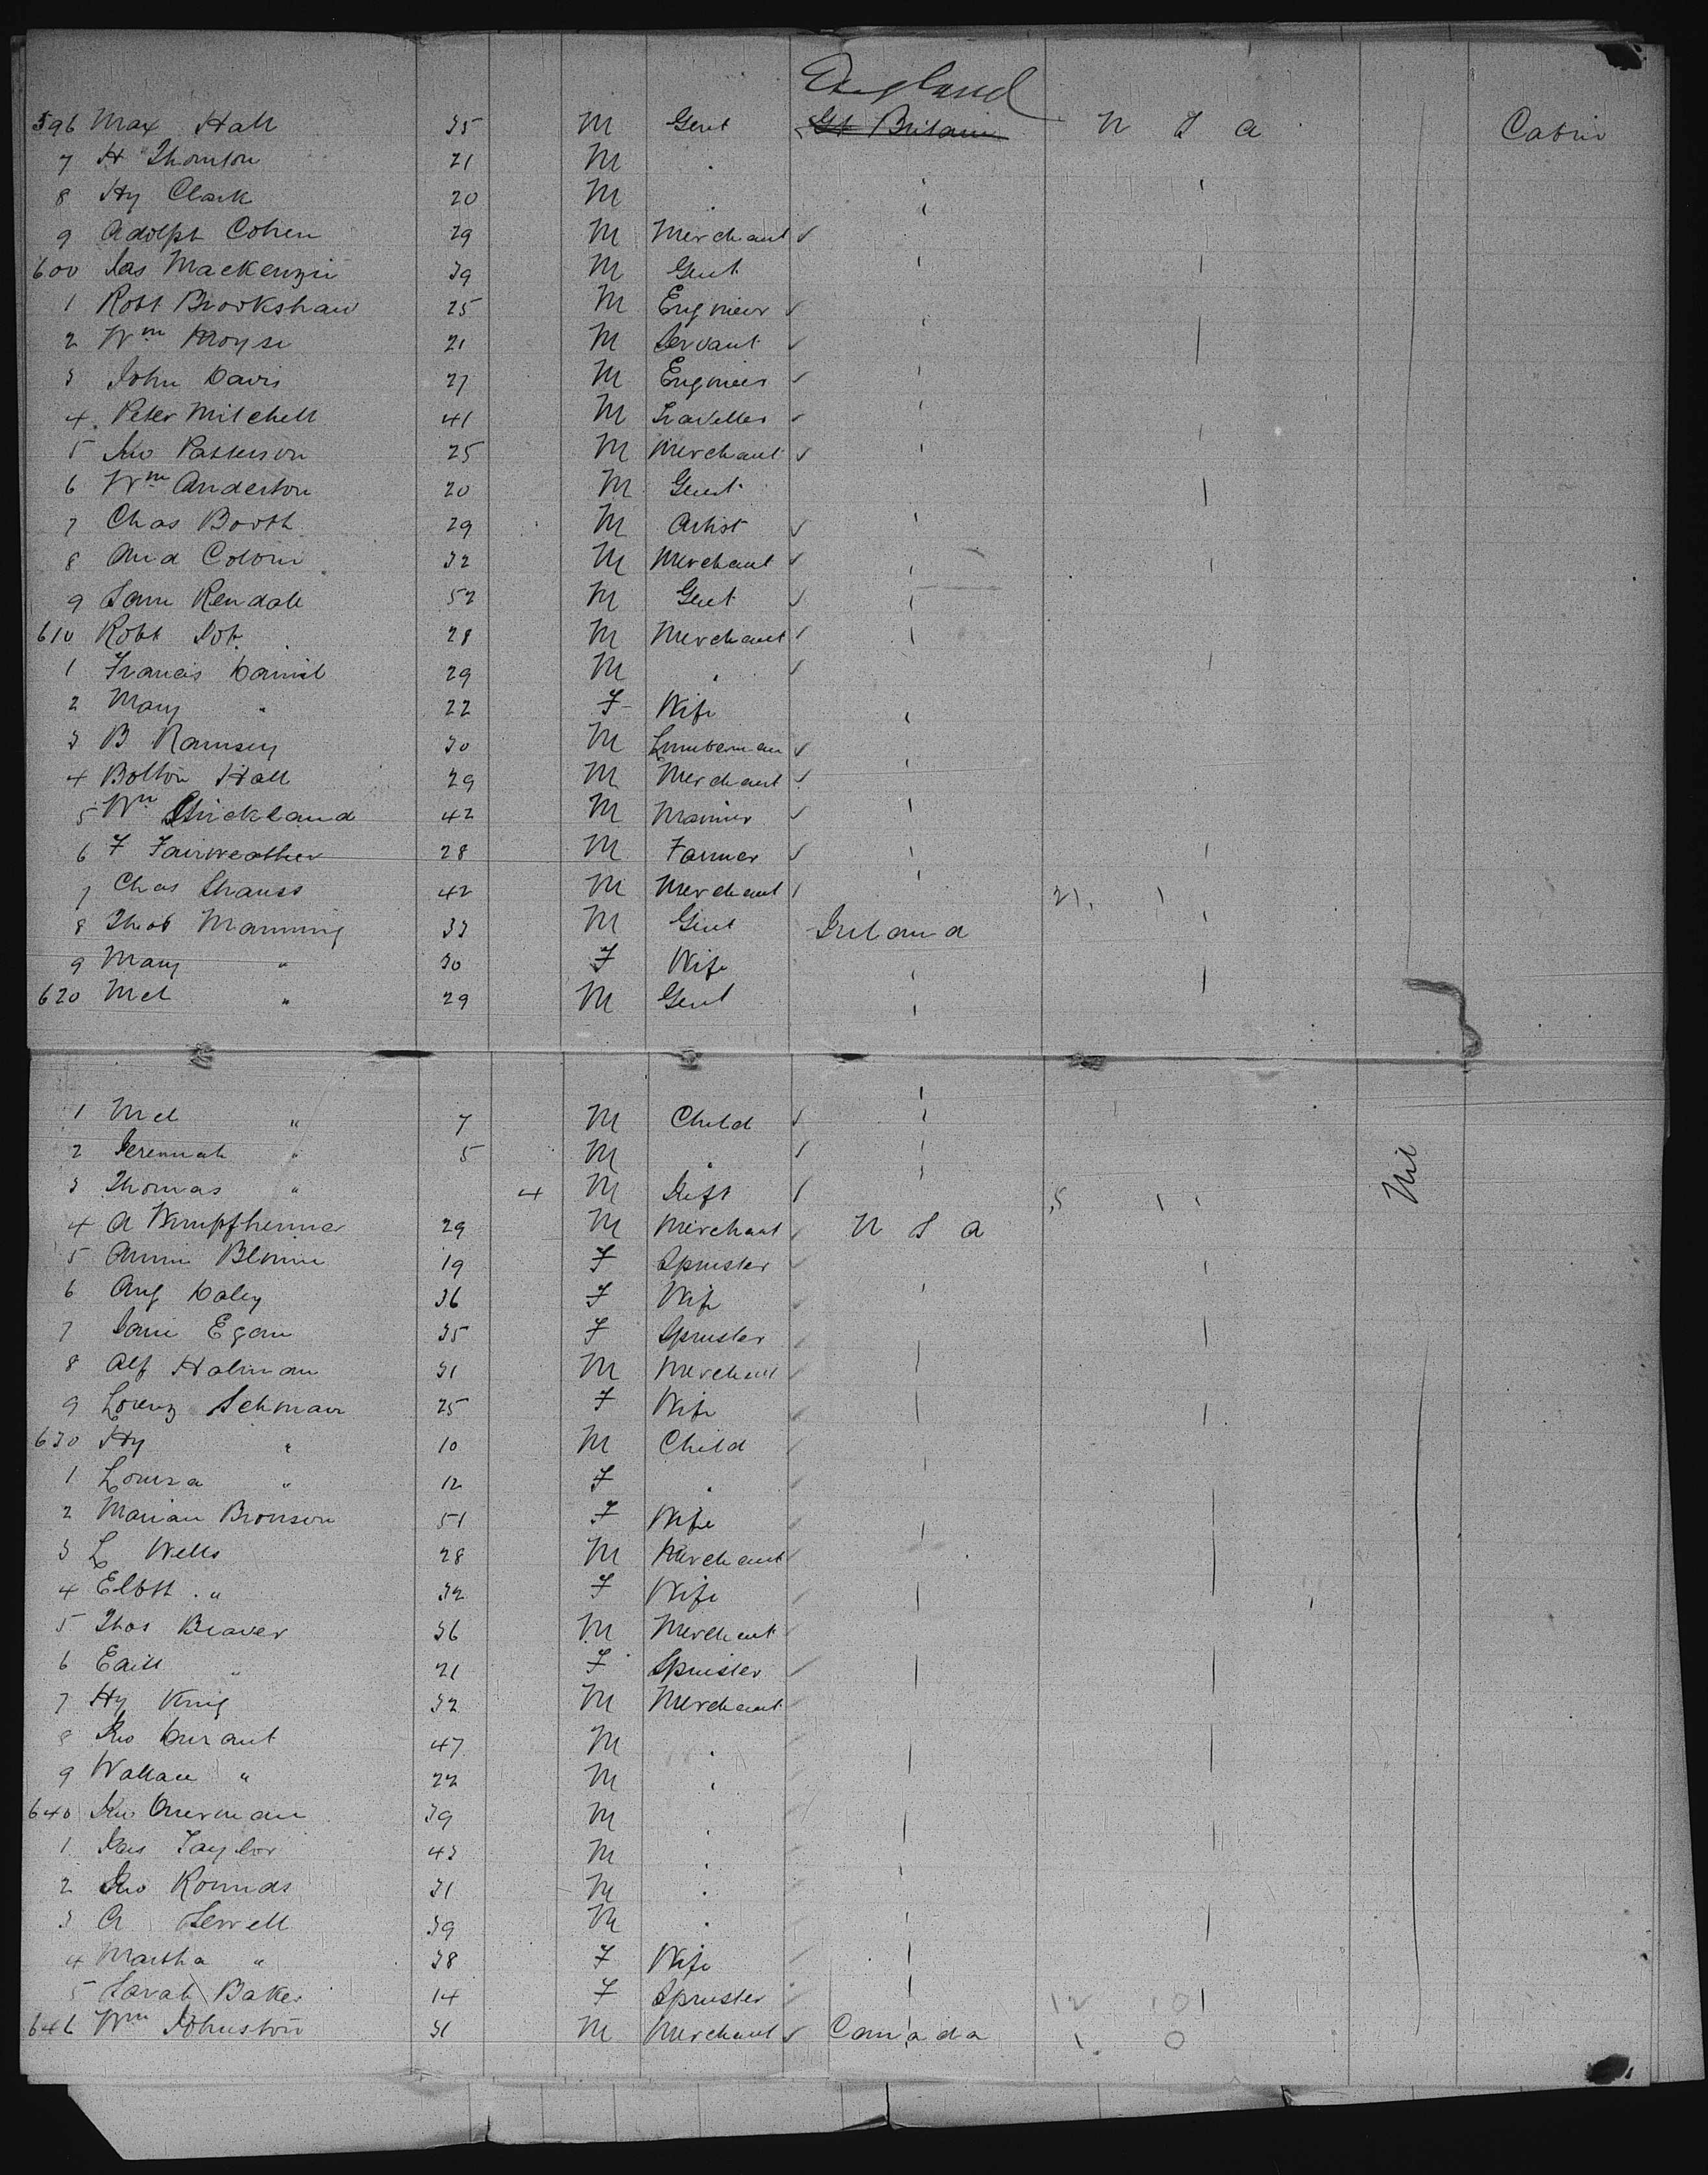 England
596 Max Hall 35 M Gent Gt Britain U S A Cabin
7 H Thornton 21 M "
8 Hy Clark 20 M "
9 Adolph Cohen 29 M Merchant
600 Jas Mackenzie 39 M Gent
1 Robt Brookshaw 25 M Engineer
2 Wm Moyse 21 M Servant
3 John Davis 27 M Engineer
4 Peter Mitchell 41 M Traveller
5 Jno Patterson 25 M Merchant
6 Wm Anderton 20 M Gent
7 Chas Booth 29 M Artist
8 And 32 M Merchant
9 Sam Rendall 52 M Gent
610 Robt 28 M Merchant
1 Francis Daniel 29 M "
2 Mary " 22 F Wife
3 B Ramsey 30 M Lumberman
4 Bolton Hall 29 M Merchant
5 Wm Strickland 42 M Mariner
6 F Fairweather 28 M Farmer
7 Chas Strauss 42 M Merchant 21
8 Thos Manning 33 M Gent Ireland
9 Mary " 30 F Wife
620 Mcl " 29 M Gent
1 Mcl " 7 M Child
2 Jeremiah " 5 M " Nil
3 Thomas " 4 M Inft 5
4 A 29 M Merchant U S A
5 Annie 19 F Spinster
6 Aug Daley 36 F Wife
7 Jane Egan 35 F Spinster
8 Alf Holman 31 M Merchant
9 Lorenz 25 F Wife
630 Hy " 10 M Child
1 Louisa " 12 F "
2 Marian Bronson 51 F Wife
3 L Wells 28 M Merchant
4 Elbth " 32 F Wife
5 Thos Beaver 36 M Merchant
6 Edith " 21 F Spinster
7 Hy King 32 M Merchant
8 Jno Durant 47 M "
9 Wallace " 22 M "
640 Jno 39 M "
1 Jas Taylor 43 M "
2 Jno Rounds 31 M "
3 A Sewell 39 M "
4 Martha " 38 F Wife
5 Sarah Baker 14 F Spinster 12 0
646 Wm Johnston 31 M Merchant Canada 1 0